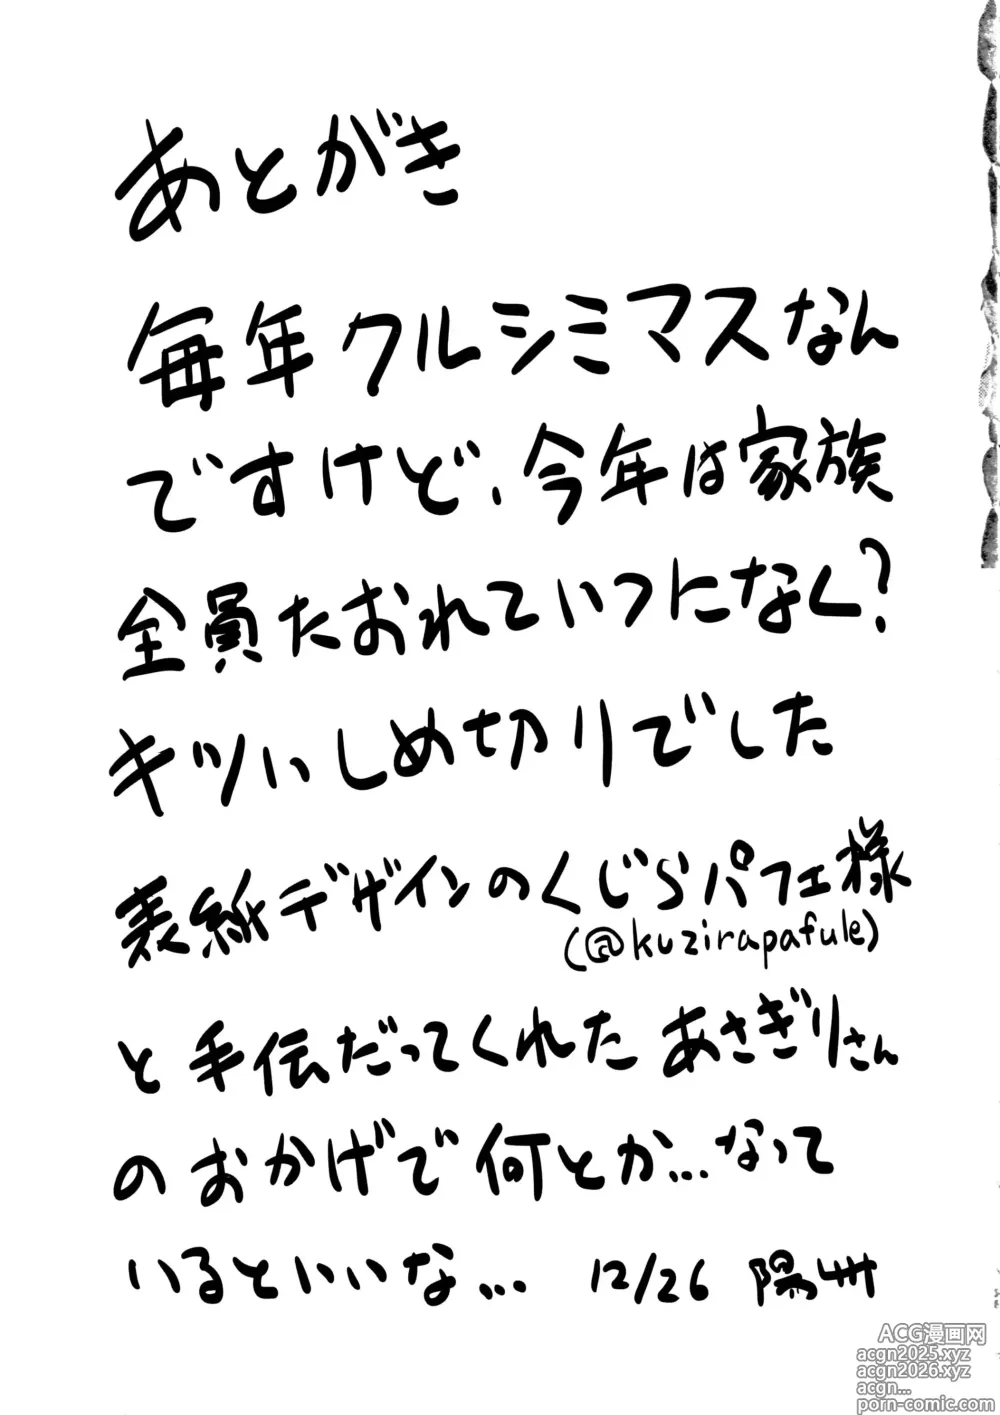 あとがき
毎年クルシミマスなん
ですけど、今年は家族
全員たおれていつになく?
キツいしめ切りでした
表紙デザインのくじらパフェ様
(@kuzirapafule)
と手伝だってくれたあさぎりさん
のおかげで何とか...なって
いるといいな... 12/26 陽州
ACG漫画网
acgn2025.xyz
acgn2026.xyz
acgn...
porn-comic.com